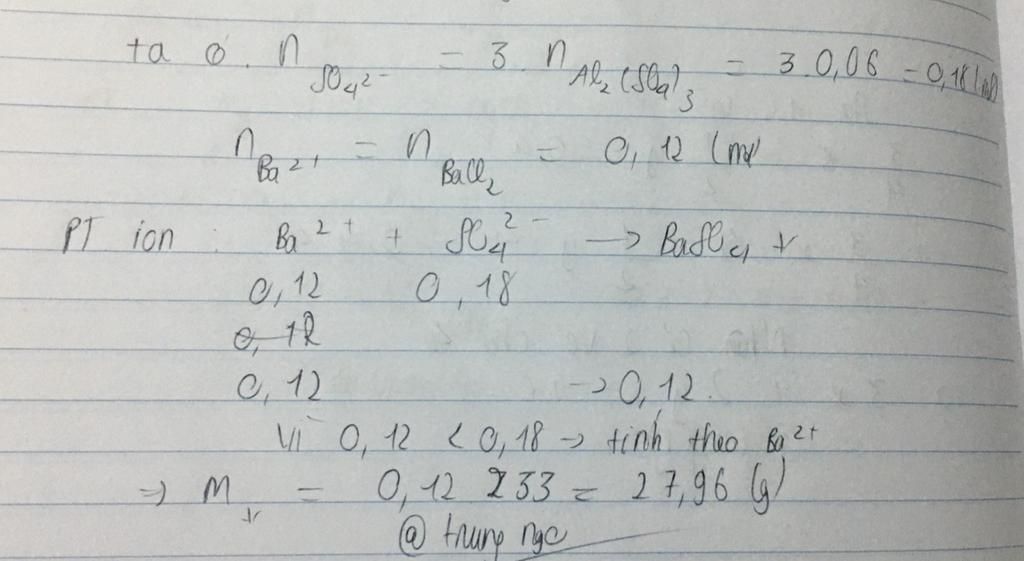 ta có. n SO₄²⁻ = 3. n Al₂(SO₄)₃ = 3.0,06 = 0,18(mol)
n Ba²⁺ = n BaCl₂ = 0,12 (mol)
PT ion : Ba²⁺ + SO₄²⁻ → BaSO₄ ↓
0,12 0,18
0,12
0,12 → 0,12.
Vì 0,12 < 0,18 → tính theo Ba²⁺
=> m↓ = 0,12 233 = 27,96 (g)
@ trung ngo